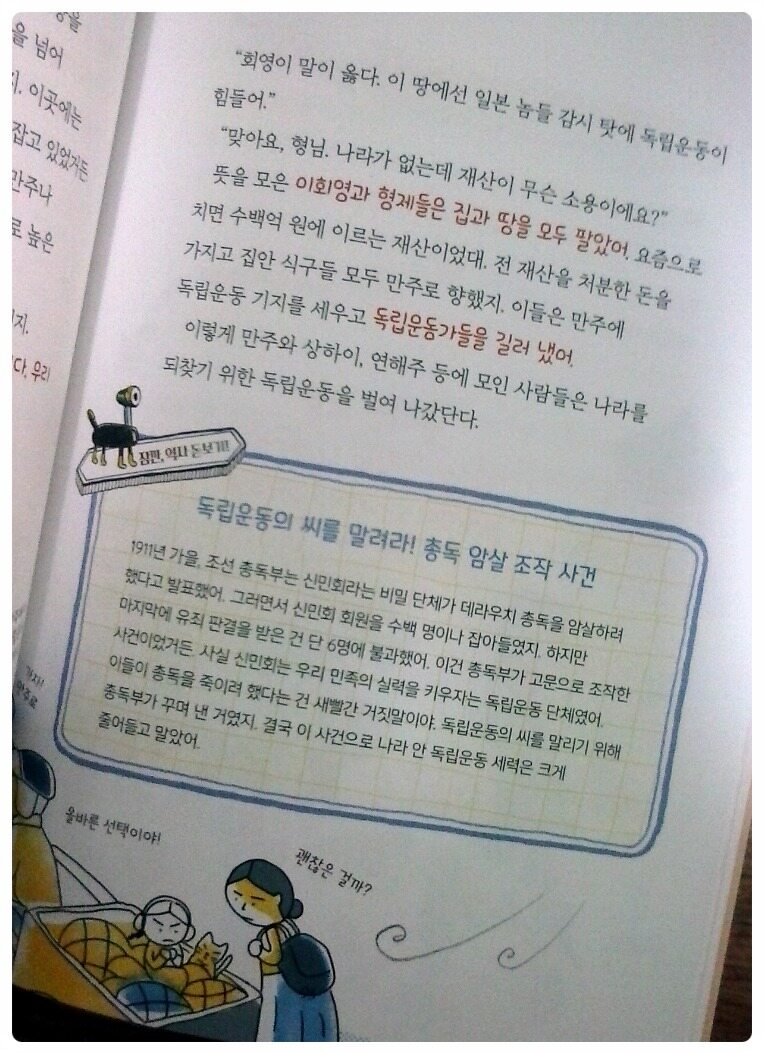 을 넘어
지. 이곳에는
잡고 있었거든
만주나
로 높은
지.
다. 우리
"회영이 말이 옳다. 이 땅에선 일본 놈들 감시 탓에 독립운동이
힘들어."
"맞아요, 형님. 나라가 없는데 재산이 무슨 소용이에요?"
뜻을 모은 이회영과 형제들은 집과 땅을 모두 팔았어. 요즘으로
치면 수백억 원에 이르는 재산이었대. 전 재산을 처분한 돈을
가지고 집안 식구들 모두 만주로 향했지. 이들은 만주에
독립운동 기지를 세우고 독립운동가들을 길러 냈어.
이렇게 만주와 상하이, 연해주 등에 모인 사람들은 나라를
되찾기 위한 독립운동을 벌여 나갔단다.
잠깐, 역사 돋보기!
독립운동의 씨를 말려라! 총독 암살 조작 사건
1911년 가을, 조선 총독부는 신민회라는 비밀 단체가 데라우치 총독을 암살하려
했다고 발표했어. 그러면서 신민회 회원을 수백 명이나 잡아들였지. 하지만
마지막에 유죄 판결을 받은 건 단 6명에 불과했어. 이건 총독부가 고문으로 조작한
사건이었거든. 사실 신민회는 우리 민족의 실력을 키우자는 독립운동 단체였어.
이들이 총독을 죽이려 했다는 건 새빨간 거짓말이야. 독립운동의 씨를 말리기 위해
총독부가 꾸며 낸 거였지. 결국 이 사건으로 나라 안 독립운동 세력은 크게
줄어들고 말았어.
올바른 선택이야!
괜찮은 걸까?